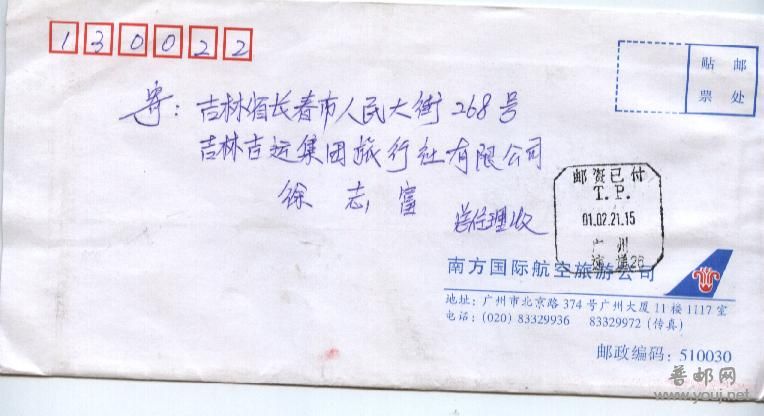 130022
贴邮
票处
寄：吉林省长春市人民大街268号
吉林吉运集团旅行社有限公司
徐志富
总经理收
邮资已付
T.P.
01.02.21.15
广州
26
南方国际航空旅游公司
地址：广州市北京路374号广州大厦11楼1117室
电话：(020) 83329936 83329972 (传真)
邮政编码：510030
普邮网
www.youj.net